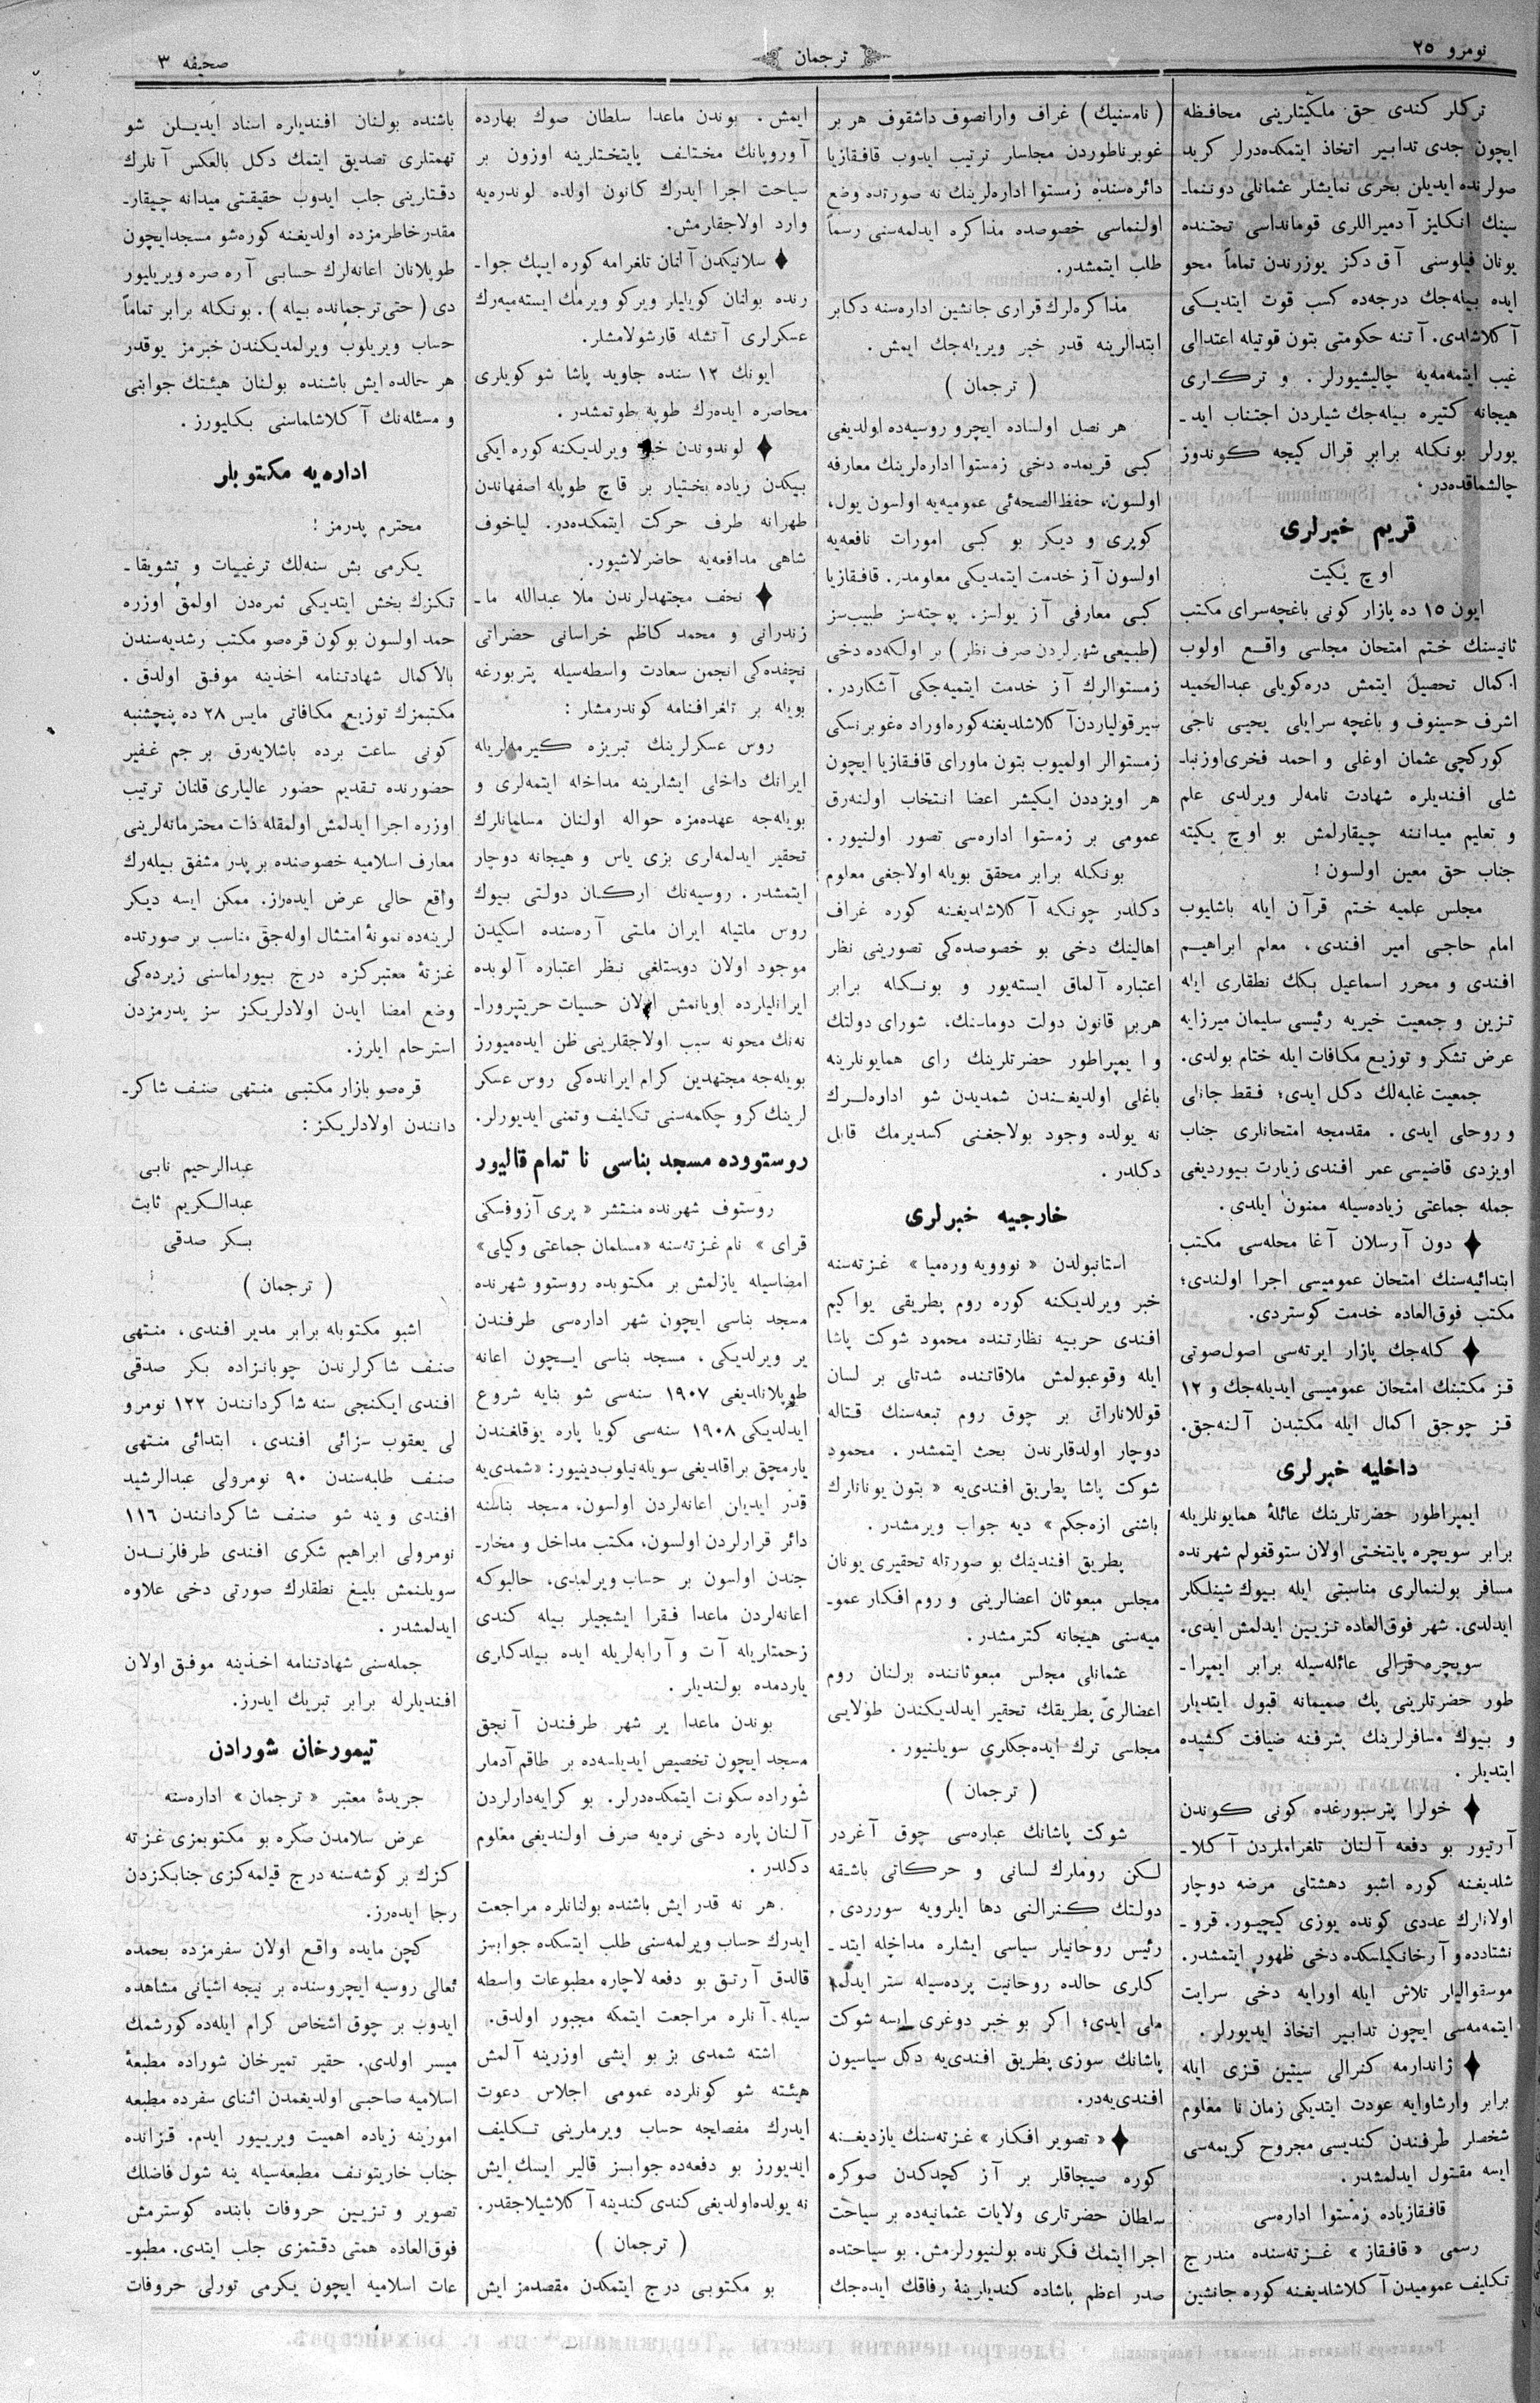 نومرو ٢٥
ترجمان
صحیفه ٣
تركلر كندى حق ملكيتلرينى محافظه
ايچون جدى تدابير اتخاذ ايتمكده‌درلر كريد
صولرنده ايديلن بحرى نمايشلر عثمانلى دوننماـ
سينك انكليز آدميراللرى قومانداسى تحتنده
يونان فيلوسنى آق دكز يوزرندن تماماً محو
ايده بيله‌جك درجه‌ده كسب قوت ايتديكى
آكلاشلدى. آتنه حكومتى بتون قوتيله اعتدالى
غيب ايتمه‌مه‌يه چاليشيورلر. و تركلرى
هيجانه كتيره بيله‌جك شيلردن اجتناب ايدـ
يورلر بونكله برابر قرال كيجه كوندوز
چالشماقده‌در.
قريم خبرلرى
اوچ يكيت
ايون ١٥ ده پازار كونى باغچه‌سراى مكتب
ثانيسنك ختم امتحان مجلسى واقع اولوب
اكمال تحصيل ايتمش دره‌كويلى عبدالحميد
اشرف حسينوف و باغچه سرايلى يحيى ناجى
كوركچى عثمان اوغلى و احمد فخرى اوزنباـ
شلى افنديلره شهادت نامه‌لر ويرلدى علم
و تعليم ميداننه چيقارلمش بو اوچ يكيته
جناب حق معين اولسون!
مجلس علميه ختم قرآن ايله باشلايوب
امام حاجى امير افندى، معلم ابراهيم
افندى و محرر اسماعيل بكك نطقلرى ايله
تزين و جمعيت خيريه رئيسى سليمان ميرزايه
عرض تشكر و توزيع مكافات ايله ختام بولدى.
جمعيت غلبه‌لك دكل ايدى؛ فقط جانلى
و روحلى ايدى. مقدمجه امتحانلرى جناب
اويزدى قاضيسى عمر افندى زيارت بيورديغى
جمله جماعتى زياده‌سيله ممنون ايلدى.
♦ دون آرسلان آغا محله‌سى مكتب
ابتدائيه‌سنك امتحان عموميسى اجرا اولندى؛
مكتب فوق‌العاده خدمت كوستردى.
♦ كله‌جك پازار ايرته‌سى اصول‌صوتى
قز مكتبنك امتحان عموميسى ايديله‌جك و ١٢
قز چوجق اكمال ايله مكتبدن آلنه‌جق.
داخليه خبرلرى
ايمپراطور حضرتلرينك عائلۀ همايونلريله
برابر سويچره پايتختى اولان ستوقغولم شهرنده
مسافر بولنمالرى مناسبتى ايله بيوك شينلكلر
ايدلدى. شهر فوق‌العاده تزيين ايدلمش ايدى.
سويچره قرالى عائله‌سيله برابر ايمپراـ
طور حضرتلرينى پك صميمانه قبول ايتديلر
و بيوك مسافرلرينك شرفنه ضيافت كشيده
ايتديلر.
♦ خولرا پترسبورغده كونى كوندن
آرتيور بو دفعه آلنان تلغرافلردن آكلاـ
شلديغنه كوره اشبو دهشتلى مرضه دوچار
اولانلرك عددى كونده يوزى كيچيور. قروـ
نشتادده و آرخانكيلسكده دخى ظهور ايتمشدر.
موسقواليلر تلاش ايله اورايه دخى سرايت
ايتمه‌مه‌سى ايچون تدابير اتخاذ ايديورلر.
♦ ژاندارمه كنرالى سيتين قزى ايله
برابر وارشاوايه عودت ايتديكى زمان نا معلوم
شخصلر طرفندن كنديسى مجروح كريمه‌سى
ايسه مقتول ايدلمشدر.
قافقازياده زمستوا اداره‌سى
رسمى «قافقاز» غزته‌سنده مندرج
تكليف عموميدن آكلاشلديغنه كوره جانشين
(نامسنيك) غراف وارانصوف داشقوف هر بر
غوبرناطوردن مجلسلر ترتيب ايدوب قافقازيا
دائره‌سنده زمستوا اداره‌لرينك نه صورتده وضع
اولنماسى خصوصده مذاكره ايدلمه‌سنى رسماً
طلب ايتمشدر.
مذاكره‌لرك قرارى جانشين اداره‌سنه دكابر
ابتدالرينه قدر خبر ويريله‌جك ايمش.
(ترجمان)
هر نصل اولساده ايچرو روسيه‌ده اولديغى
كبى قريمده دخى زمستوا اداره‌لرينك معارفه
اولسون، حفظ‌الصحه‌ئى عموميه‌يه اولسون يول،
كوپرى و ديكر بو كبى امورات نافعه‌يه
اولسون آز خدمت ايتمديكى معلومدر. قافقازيا
كبى معارفى آز يولسز، پوچته‌سز طبيب‌سز
(طبيعى شهرلردن صرف نظر) بر اولكه‌ده دخى
زمستوالرك آز خدمت ايتميه‌جكى آشكاردر.
سيرقولياردن آكلاشلديغنه كوره اوراده غوبرنسكى
زمستوالر اولميوب بتون ماوراى قافقازيا ايچون
هر اويزددن ايكيشر اعضا انتخاب اولنه‌رق
عمومى بر زمستوا اداره‌سى تصور اولنيور.
بونكله برابر محقق بويله اولاجغى معلوم
دكلدر چونكه آكلاشلديغنه كوره غراف
اهالينك دخى بو خصوصده‌كى تصورينى نظر
اعتباره آلماق ايسته‌يور و بونكله برابر
هر بر قانون دولت دوماسنك، شوراى دولتك
و ايمپراطور حضرتلرينك راى همايونلرينه
باغلى اولديغندن شمديدن شو اداره‌لرك
نه يولده وجود بولاجغنى كسديرمك قابل
دكلدر.
خارجيه خبرلرى
استانبولدن «نوويه وره‌ميا» غزته‌سنه
خبر ويرلديكنه كوره روم پطريقى يواكيم
افندى حربيه نظارتنده محمود شوكت پاشا
ايله وقوعبولمش ملاقاتنده شدتلى بر لسان
قوللاناراق بر چوق روم تبعه‌سنك قتاله
دوچار اولدقلرندن بحث ايتمشدر. محمود
شوكت پاشا پطريق افندى‌يه «بتون يونانلرك
باشنى ازه‌جكم» ديه جواب ويرمشدر.
پطريق افندينك بو صورتله تحقيرى يونان
مجلس مبعوثان اعضالرينى و روم افكار عموـ
ميه‌سنى هيجانه كترمشدر.
عثمانلى مجلس مبعوثاننده برلنان روم
اعضالرى پطريقك، تحقير ايدلديكندن طولايى
مجلسى ترك ايده‌جكلرى سويلنيور.
(ترجمان)
شوكت پاشانك عباره‌سى چوق آغردر
لكن روملرك لسانى و حركاتى باشقه
دولتك كنرالنى دها ايلرويه سورردى.
رئيس روحانيلر سياسى ايشلره مداخله ايتدـ
كلرى حالده روحانيت پرده‌سيله ستر ايدلمه
ملى ايدى؛ اكر بو خبر دوغرى ايسه شوكت
پاشانك سوزى پطريق افندى‌يه دكل سياسيون
افندى‌يه‌در.
♦ «تصوير افكار» غزته‌سنك يازديغنه
كوره صيجاقلر بر آز كچدكدن صوكره
سلطان حضرتلرى ولايات عثمانيه‌ده بر سياحت
اجرا ايتمك فكرنده بولنيورلرمش. بو سياحتده
صدر اعظم پاشاده كنديلرينۀ رفاقك ايده‌جك
ايمش. بوندن ماعدا سلطان صوك بهارده
آوروپانك مختلف پايتختلرينه اوزون بر
سياحت اجرا ايدرك كانون اولده لوندره‌يه
وارد اولاجقلرمش.
♦ سلانيكدن آلنان تلغرامه كوره ايپك جواـ
رنده بولنان كويليلر ويركو ويرمك ايسته‌ميه‌رك
عسكرلرى آتشله قارشولامشلر.
ايونك ١٢ سنده جاويد پاشا شو كويلرى
محاصره ايده‌رك طوپه طوتمشدر.
♦ لوندوندن خبر ويرلديكنه كوره ايكى
بيكدن زياده بختيار بر قاچ طوپله اصفهاندن
طهرانه طرف حركت ايتمكده‌در. لياخوف
شاهى مدافعه‌يه حاضرلاشيور.
♦ نجف مجتهدلرندن ملا عبدالله ماـ
زندرانى و محمد كاظم خراسانى حضراتى
نجفده‌كى انجمن سعادت واسطه‌سيله پتربورغه
بويله بر تلغرافنامه كوندرمشلر:
روس عسكرلرينك تبريزه كيرمه‌لريله
ايرانك داخلى ايشلرينه مداخله ايتمه‌لرى و
بويله‌جه عهده‌مزه حواله اولنان مسلمانلرك
تحقير ايدلمه‌لرى بزى ياس و هيجانه دوچار
ايتمشدر. روسيه‌نك اركان دولتى بيوك
روس ملتيله ايران ملتى آره‌سنده اسكيدن
موجود اولان دوستلغى نظر اعتباره آلوبده
ايرانليلرده اويانمش اولان حسيات حريتپروراـ
نه‌نك محونه سبب اولاجقلرينى ظن ايده‌ميورز
بويله‌جه مجتهدين كرام ايرانده‌كى روس عسكر
لرينك كرو چكلمه‌سنى تكليف وتمنى ايديورلر.
روستووده مسجد بناسى نا تمام قاليور
روستوف شهرنده منتشر «پرى آزوفسكى
قراى» نام غزته‌سنه «مسلمان جماعتى وكيلى»
امضاسيله يازلمش بر مكتوبده روستوو شهرنده
مسجد بناسى ايچون شهر اداره‌سى طرفندن
ير ويرلديكى، مسجد بناسى ايچون اعانه
طوپلانلديغى ١٩٠٧ سنه‌سى شو بنايه شروع
ايدلديكى ١٩٠٨ سنه‌سى كويا پاره يوقلغندن
يارمچق براقلديغى سويله‌نيلوب دينيور: «شمدى‌يه
قدر ايديلن اعانه‌لردن اولسون، مسجد بناسنه
دائر قرارلردن اولسون، مكتب مداخل و مخارـ
جندن اولسون بر حساب ويرلمدى، حالبوكه
اعانه‌لردن ماعدا فقرا ايشجيلر بيله كندى
زحمتلريله آت و آرابه‌لريله ايده بيلدكلرى
ياردمده بولنديلر.
بوندن ماعدا ير شهر طرفندن آنجق
مسجد ايچون تخصيص ايديلسه‌ده بر طاقم آدملر
شوراده سكونت ايتمكده‌درلر. بو كرايه‌دارلردن
آلنان پاره دخى نره‌يه صرف اولنديغى معلوم
دكلدر.
هر نه قدر ايش باشنده بولنانلره مراجعت
ايدرك حساب ويرلمه‌سنى طلب ايتسكده جوابسز
قالدق آرتق بو دفعه لاچاره مطبوعات واسطه
سيله آنلره مراجعت ايتمكه مجبور اولدق.
اشته شمدى بز بو ايشى اوزرينه آلمش
هيئته شو كونلرده عمومى اجلاس دعوت
ايدرك مفصلجه حساب ويرملرينى تكليف
ايديورز بو دفعه‌ده جوابسز قالير ايسك ايش
نه يولده اولديغى كندى كندينه آكلاشيلاجقدر.
(ترجمان)
بو مكتوبى درج ايتمكدن مقصدمز ايش
باشنده بولنان افنديلره اسناد ايديلن شو
تهمتلرى تصديق ايتمك دكل بالعكس آنلرك
دقتلرينى جلب ايدوب حقيقتى ميدانه چيقارـ
مقدر خاطرمزده اولديغنه كوره شو مسجد ايچون
طوپلانان اعانه‌لرك حسابى آره صره ويريليور
دى (حتى ترجمانده بيله). بونكله برابر تماماً
حساب ويريلوب ويرلمديكندن خبرمز يوقدر
هر حالده ايش باشنده بولنان هيئتك جوابنى
و مسئله‌نك آكلاشلماسنى بكليورز.
اداره‌يه مكتوبلر
محترم پدرمز!
يكرمى بش سنه‌لك ترغيبات و تشويقاـ
تكزك بخش ايتديكى ثمره‌دن اولمق اوزره
حمد اولسون بوكون قره‌صو مكتب رشديه‌سندن
بالاكمال شهادتنامه اخذينه موفق اولدق.
مكتبمزك توزيع مكافاتى مايس ٢٨ ده پنچشنبه
كونى ساعت برده باشلايه‌رق بر جم غفير
حضورنده تقديم حضور عاليلرى قلنان ترتيب
اوزره اجرا ايدلمش اولمقله ذات محترمانه‌لرينى
معارف اسلاميه خصوصنده بر پدر مشفق بيله‌رك
واقع حالى عرض ايده‌رز. ممكن ايسه ديكر
لرينه‌ده نمونۀ امتثال اوله‌جق مناسب بر صورتده
غزتۀ معتبركزه درج بيورلماسنى زيرده‌كى
وضع امضا ايدن اولادلريكز سز پدرمزدن
استرحام ايلرز.
قره‌صو بازار مكتبى منتهى صنف شاكرـ
داندن اولادلريكز:
عبدالرحيم نابى
عبدالكريم ثابت
بكر صدقى
(ترجمان)
اشبو مكتوبله برابر مدير افندى، منتهى
صنف شاكرلرندن چوبانزاده بكر صدقى
افندى ايكنجى سنه شاكرداندن ١٢٢ نومرو
لى يعقوب سزائى افندى، ابتدائى منتهى
صنف طلبه‌سندن ٩٠ نومرولى عبدالرشيد
افندى و ينه شو صنف شاكرداندن ١١٦
نومرولى ابراهيم شكرى افندى طرفلرندن
سويلنمش بليغ نطقلرك صورتى دخى علاوه
ايدلمشدر.
جمله‌سنى شهادتنامه اخذينه موفق اولان
افنديلرله برابر تبريك ايدرز.
تيمورخان شورادن
جريدۀ معتبر «ترجمان» اداره‌سنه
عرض سلامدن صكره بو مكتوبمزى غزته
كزك بر كوشه‌سنه درج قيلمه‌كزى جنابكزدن
رجا ايده‌رز.
كچن مايده واقع اولان سفرمزده بحمده
تعالى روسيه ايچروسنده بر نيجه اشيانى مشاهده
ايدوب بر چوق اشخاص كرام ايله‌ده كورشمك
ميسر اولدى. حقير تميرخان شوراده مطبعۀ
اسلاميه صاحبى اولديغمدن اثناى سفرده مطبعه
امورينه زياده اهميت ويرييور ايدم. قزانده
جناب خاريتونف مطبعه‌سيله ينه شول فاضلك
تصوير و تزيين حروفات بابنده كوسترمش
فوق‌العاده همتى دقتمزى جلب ايتدى. مطبوـ
عات اسلاميه ايچون يكرمى تورلى حروفات